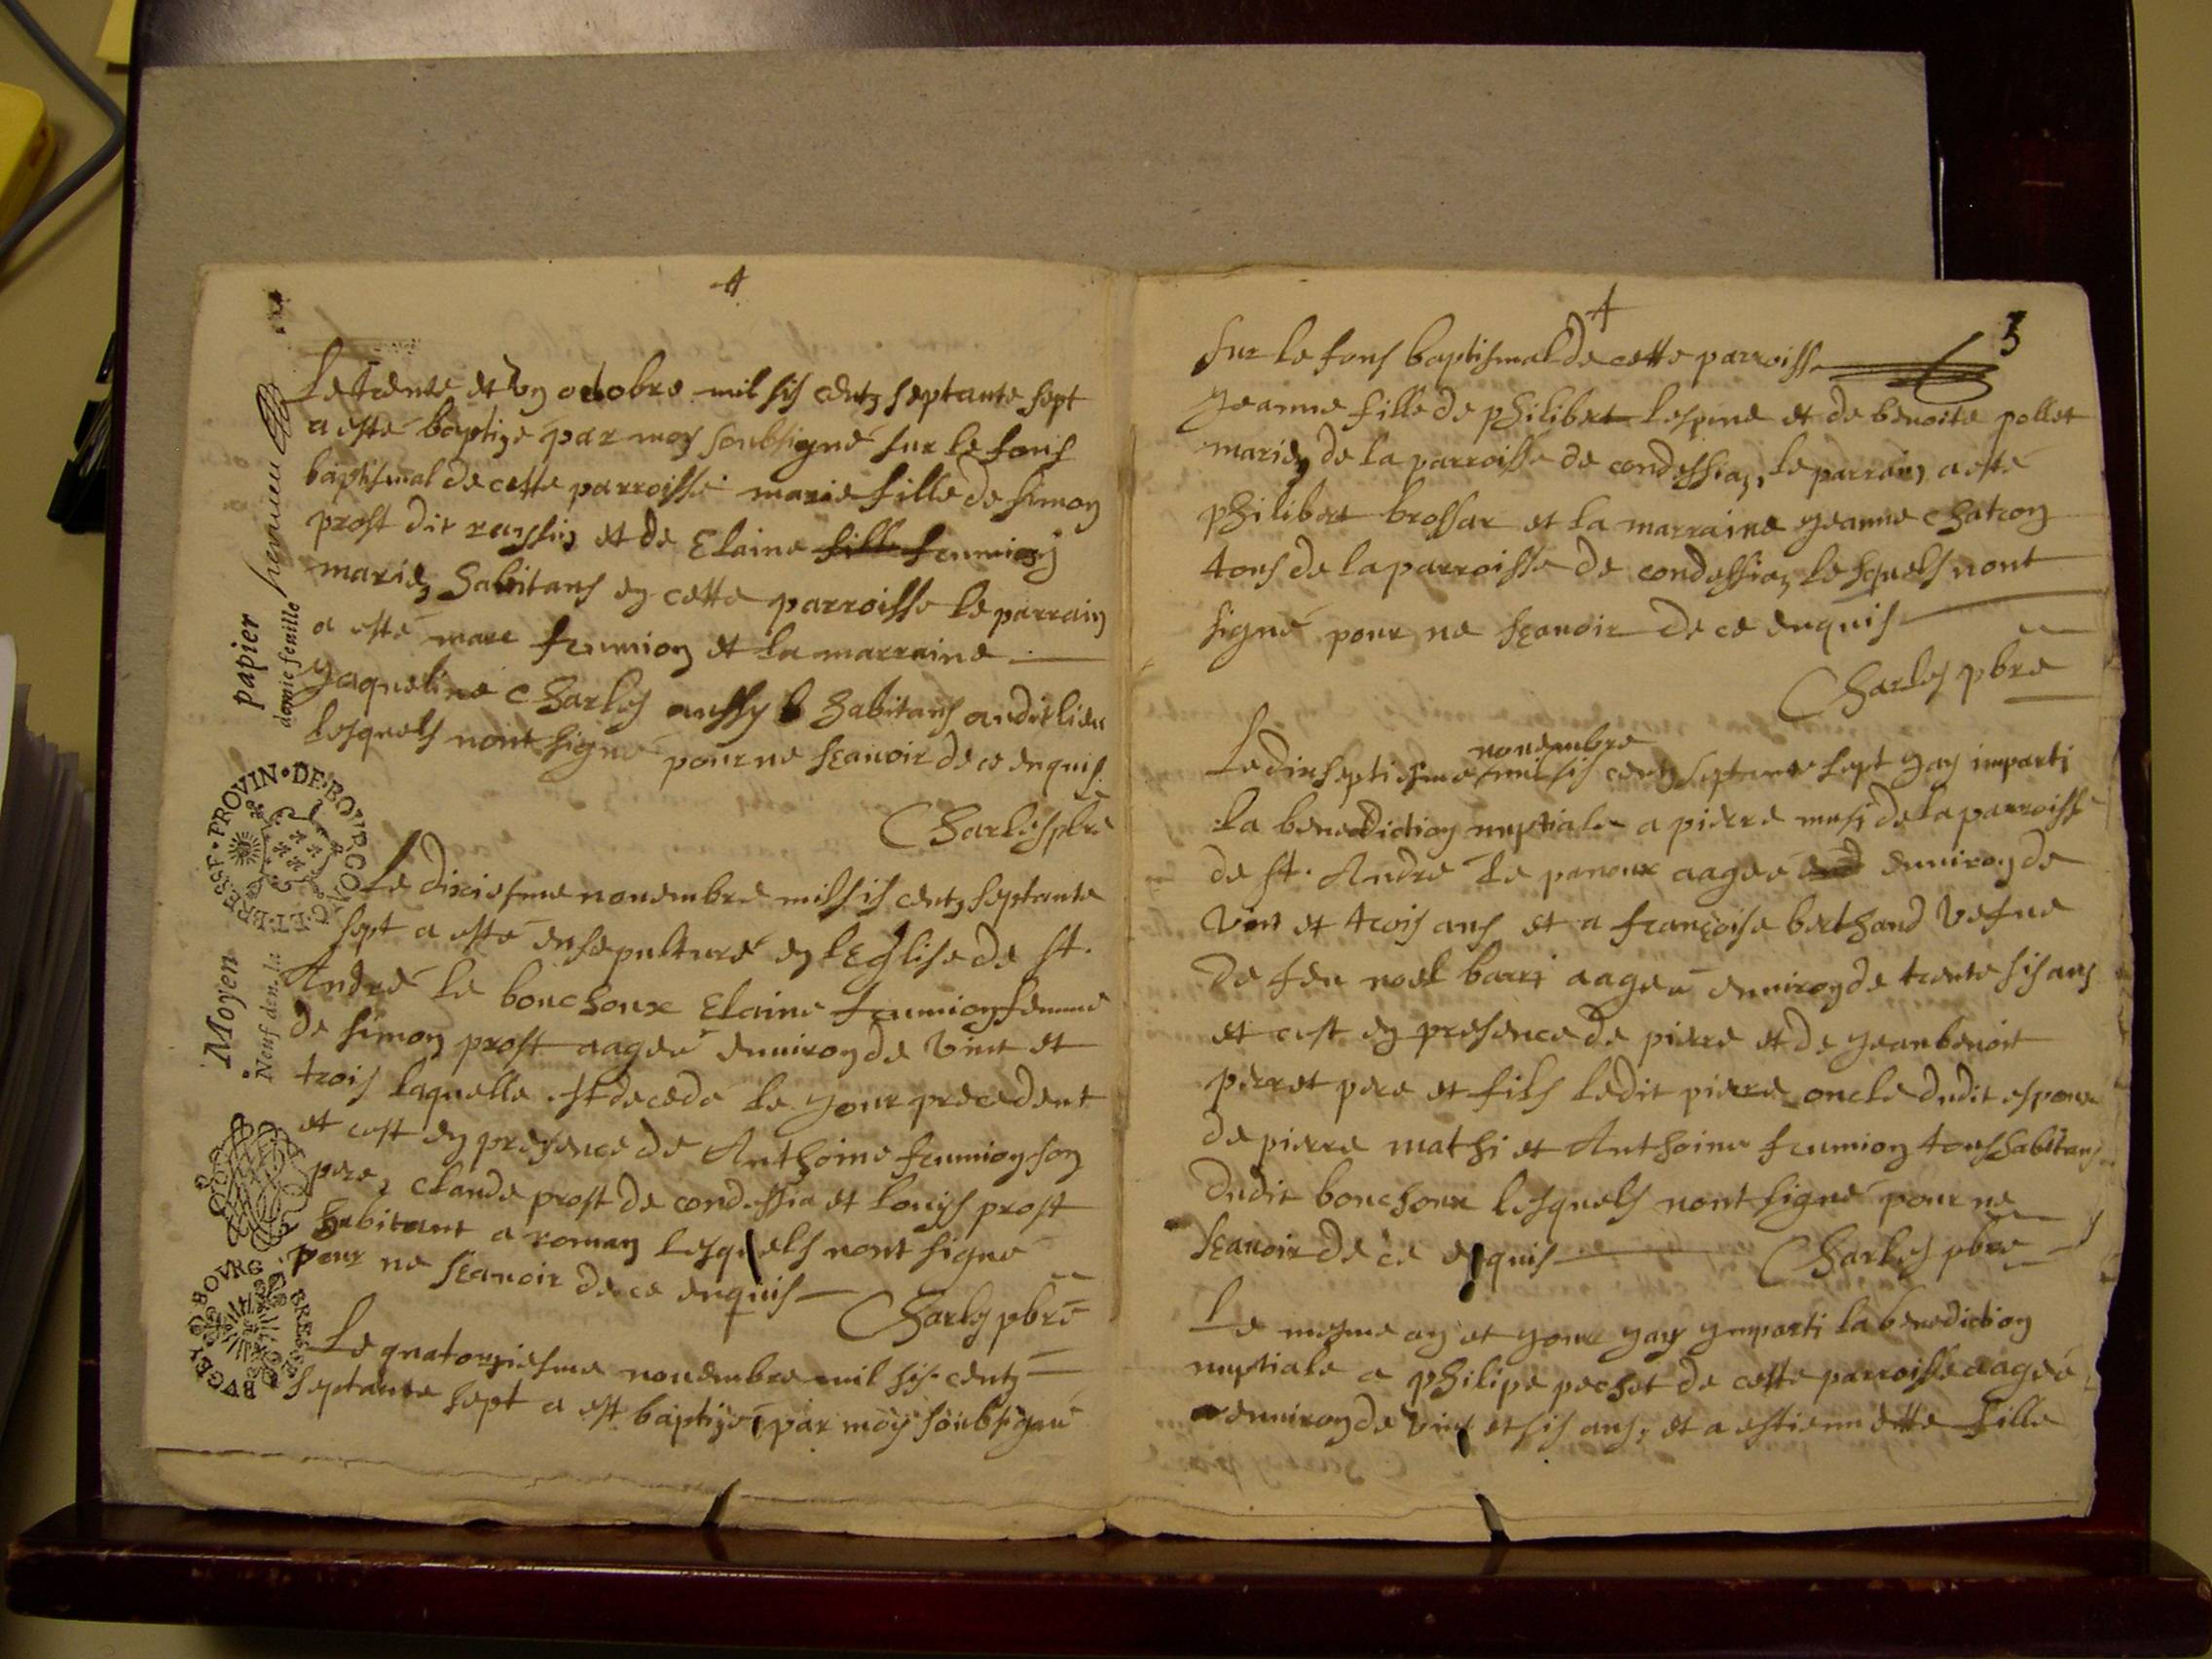 Le trente et ung octobre mil sis centz septante sept
a esté baptizé par moy soubsigné sur le fons
baptismal de cette parroisse marie fille de simon
prost dit et de Elaine frumion
mariez habitans en cette parroisse le parrain
a esté marc frumion et la marraine
yaqueline Charles aussy habitans audit lieu
lesquels n'ont signé pour ne sçavoir de ce enquis
Charles pbre
Le dixiesme novembre mil sis centz septante
sept a esté ensepulturé en l'Eglise de st.
André le bouchoux Elaine frumion femme
de simon prost aagee environ de vint et
trois laquelle est decedé le your precedent
et cest en presence de Anthoine frumion son
pere, claude prost de condessia et louis prost
habitant a roman lesquels nont signé
pour ne sçavoir de ce enquis Charles pbre
Le quatorziesme novembre mil sis centz
septante sept a est baptizé par moy soubsigné
papier
demie feuille
Moyen
Neuf den. la
PROVIN·DE·BOVRGOG
ET·BRESSE
BVGEY BOVRG BRESSE
4
4
3
sur le fons baptismal de cette parroisse
yeanne fille de philibert lespine et de benoite pollet
mariez de la parroisse de condessiaz, le parrain a esté
philibert brossar et la marraine yeanne chatron
tous de la parroisse de condessiaz lesquels nont
signé pour ne sçavoir de ce enquis
Charles pbre
novembre
Le dix septiesme mil sis centz septante sept yay imparti
la benediction nuptiale a pierre de la parroisse
de st. André le panoux aagee environ de
vint et trois ans et a françoise berthand vefve
de feu noel barri aagee environ de trente sis ans
et cest en presence de pierre et de yean benoit
perret pere et fils ledit pierre oncle dudit espoux
de pierre mathi et Anthoine frumion tous habitans
dudit bouchoux lesquels nont signé pour ne
sçavoir de ce enquis Charles pbre
Le mesme an et your yay ymparti la benediction
nuptiale a philipe pochet de cette parroisse aagee
environ de vint et sis ans, et a estiennette fille